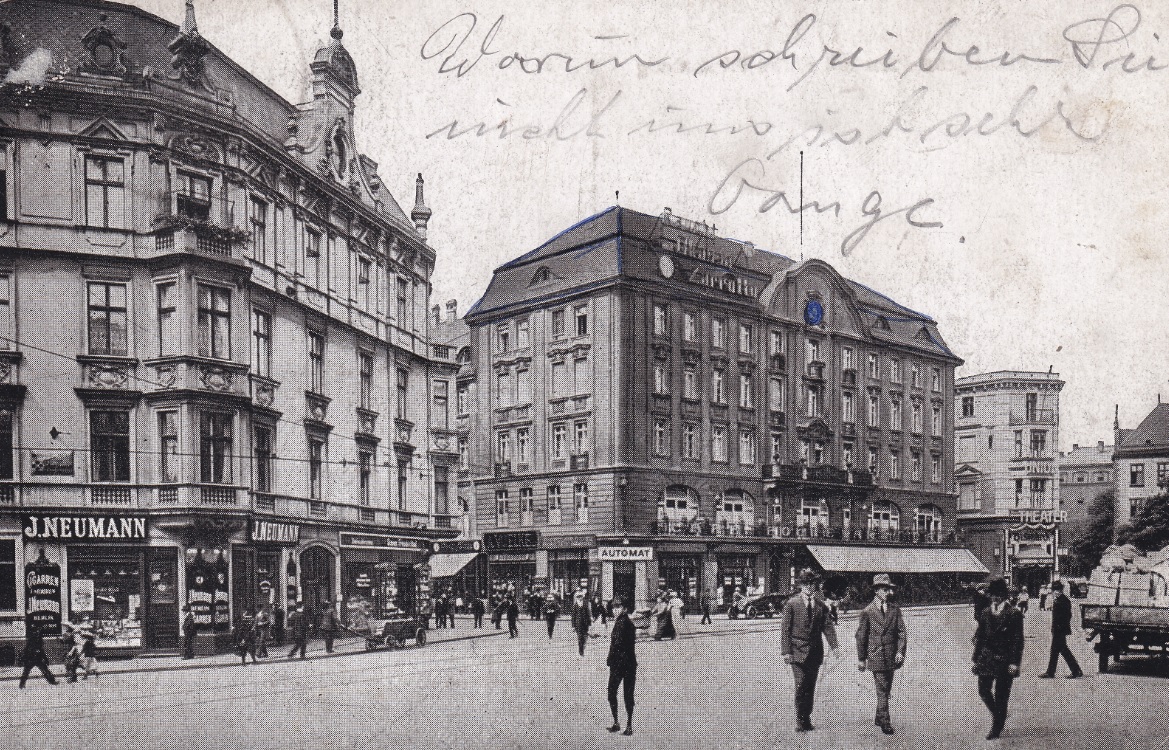 Warum schreiben Sie
nicht uns ist sehr
bange.
J.NEUMANN
J.NEUMANN
CIGARREN
J.NEUMANN
BERLIN
AUTOMAT
UNION
THEATER